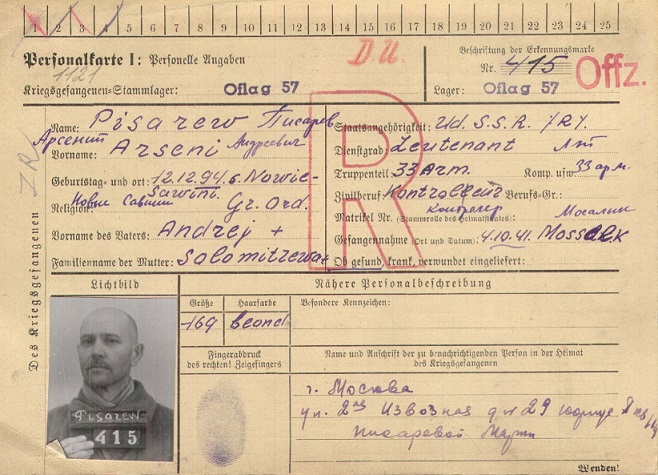 1 2 3 4 5 6 7 8 9 10 11 12 13 14 15 16 17 18 19 20 21 22 23 24 25
Personalkarte I: Personelle Angaben
D.U.
Beschriftung der Erkennungsmarke
Nr. 415
Offz.
1121
Kriegsgefangenen-Stammlager: Oflag 57
Lager: Oflag 57
R
Des Kriegsgefangenen
Name: Pisarew Писарев
Арсений Андреевич
Vorname: Arseni
Geburtstag und -ort: 12.12.94, Nowie-
Sawini.
Новие Савини
Religion: Gr. Ord.
Vorname des Vaters: Andrej +
Familienname der Mutter: Solomitzewa+
Staatsangehörigkeit: Ud. S.S.R.
Dienstgrad: Leutenant Лт
Truppenteil: 33 Arm. Komp. usw. 33 арм.
Zivilberuf: Kontrolleur Berufs-Gr.:
Контролер
Matrikel Nr. (Stammrolle des Heimatstaates): Мосальск
Gefangennahme (Ort und Datum): 4.10.41. Mossalsk
Ob gesund, krank, verwundet eingeliefert:
Lichtbild
Pisarew
415
Nähere Personalbeschreibung
Größe
Haarfarbe
Besondere Kennzeichen:
169
blond
Fingerabdruck
des rechten! Zeigefingers
Name und Anschrift der zu benachrichtigenden Person in der Heimat
des Kriegsgefangenen
г. Москва
ул. 2ая Извозная д № 29 корпус
Писаревой Марии
Wenden!